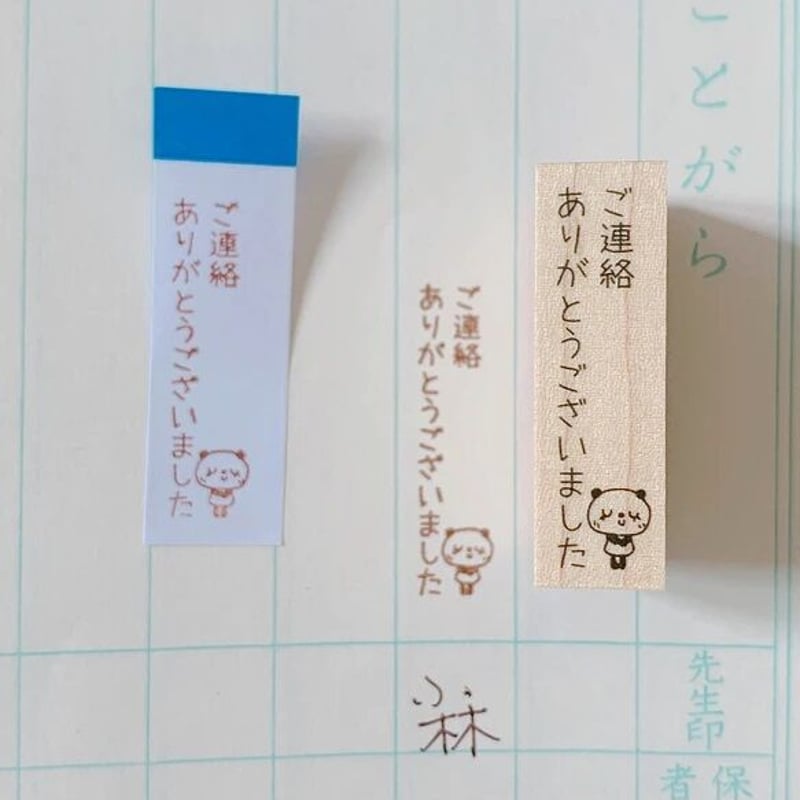 ことがら
先生印
保
者
ご連絡
ありがとうございました
ご連絡
ありがとうございました
小林
ご連絡
ありがとうございました